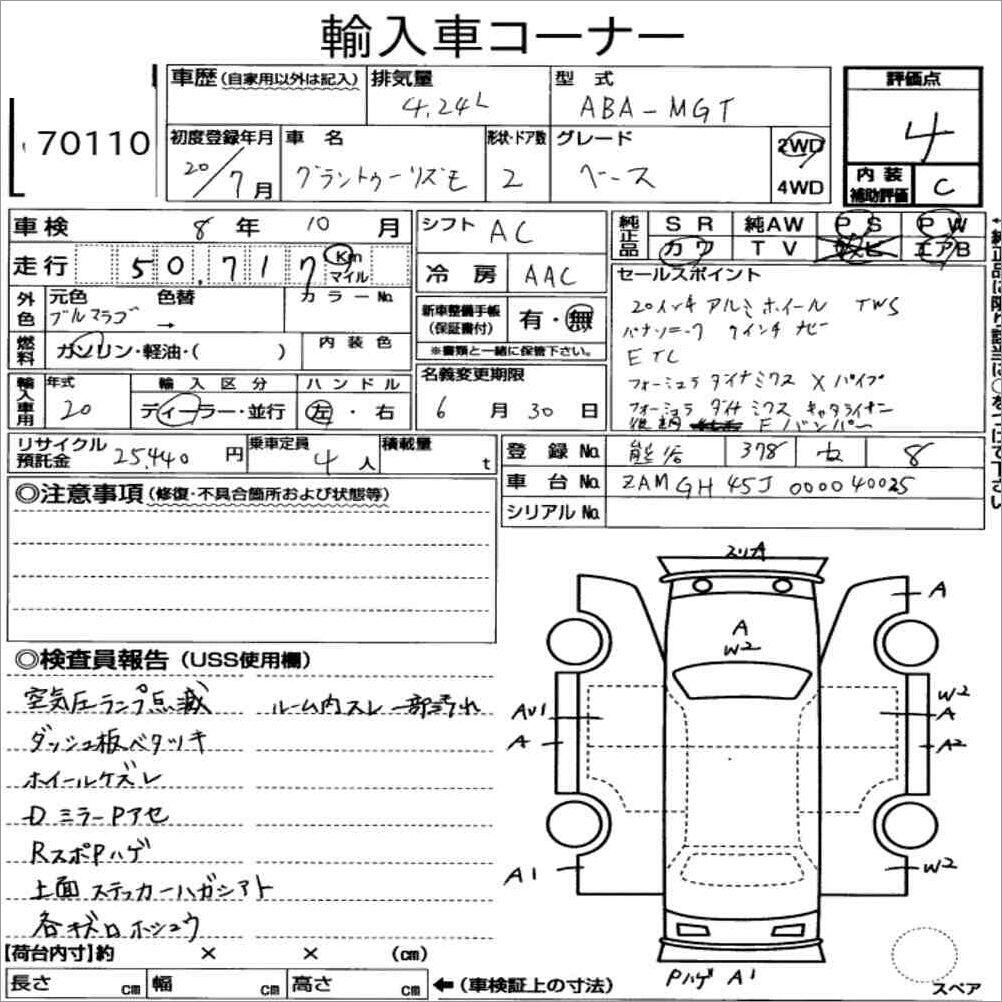 輸入車コーナー
70110
車歴(自家用以外は記入) 排気量 4,24L 型式 ABA-MGT 評価点 4
初度登録年月 20/7月 車名 グラントゥーリズモ 形状・ドア数 2 グレード ベース 2WD 4WD
内装補助評価 C
車検 8年 10月 シフト AC 純正品 SR 純AW PS PW
走行 50,717 Km マイル 冷房 AAC カワ TV エアB
外色 元色 ブルマラブ 色替 → カラーNo.
燃料 ガソリン・軽油・( ) 内装色
新車整備手帳(保証書付) 有・無
※書類と一緒に保管下さい。
セールスポイント
20インチ アルミホイール TWS
パナソニック 7インチ ナビ
ETC
フォーミュラ ダイナミクス Xパイプ
フォーミュラ ダイナミクス キャタライザー
Fバンパー
輸入車用 年式 20 輸入区分 ディーラー・並行 ハンドル 左・右
名義変更期限 6月30日
リサイクル預託金 25,440円 乗車定員 4人 積載量 t
登録No. 熊谷 378 8
車台No. ZAMGH45J000040025
シリアルNo.
◎注意事項(修復・不具合箇所および状態等)
◎検査員報告(USS使用欄)
空気圧ランプ点滅 ルーム内スレ一部汚れ
ダッシュ板ベタツキ
ホイールケズレ
DミラーPアセ
RスポPハゲ
上面ステッカーハガシアト
各キズロホシュウ
【荷台内寸】約 × × (cm)
長さ cm 幅 cm 高さ cm ←(車検証上の寸法)
スリキ
A
W2
A
AU1
A
W2
A
A2
A1
W2
Pハゲ A1
スペア